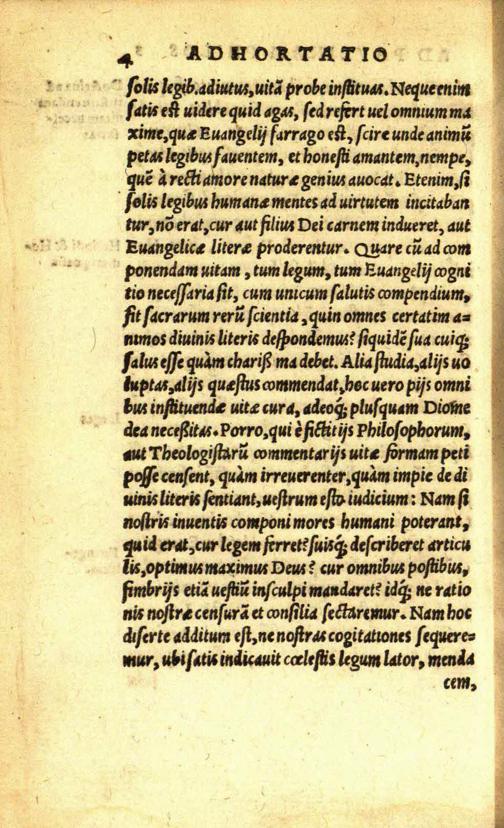 4 ADHORTATIO
ſolis legib.adiutus,uitã probe inſtituas. Neque enim
ſatis eſt uidere quid agas, ſed refert uel omnium ma
xime,quæ Euangelij farrago eſt, ſcire unde animũ
petas legibus fauentem, et honeſti amantem,nempe,
quẽ à recti amore naturæ genius auocat. Etenim,ſi
ſolis legibus humanæ mentes ad uirtutem incitaban
tur,nõ erat,cur aut filius Dei carnem indueret, aut
Euangelicæ literæ proderentur. Quare cũ ad com
ponendam uitam, tum legum, tum Euangelij cogni
tio neceſſaria ſit, cum unicum ſalutis compendium,
ſit ſacrarum rerũ ſcientia, quin omnes certatim a=
nimos diuinis literis deſpondemus? ſiquidẽ ſua cuiq;
ſalus eſſe quàm chariß ma debet. Alia ſtudia,alijs uo
luptas,alijs quæſtus commendat,hoc uero pijs omni
bus inſtituendæ uitæ cura, adeoq; plusquam Diome
dea neceßitas. Porro,qui è fictitijs Philoſophorum,
aut Theologiſtarũ commentarijs uitæ formam peti
poſſe cenſent, quàm irreuerenter,quàm impie de di
uinis literis ſentiant,ueſtrum eſto iudicium: Nam ſi
noſtris inuentis componi mores humani poterant,
quid erat,cur legem ferret? ſuisq; deſcriberet articu
lis,optimus maximus Deus? cur omnibus poſtibus,
fimbrijs etiã ueſtiũ inſculpi mandaret? idq; ne ratio
nis noſtræ cenſurã et conſilia ſectaremur. Nam hoc
diſerte additum eſt,ne noſtras cogitationes ſequere=
mur, ubi ſatis indicauit cœleſtis legum lator, menda
cem,